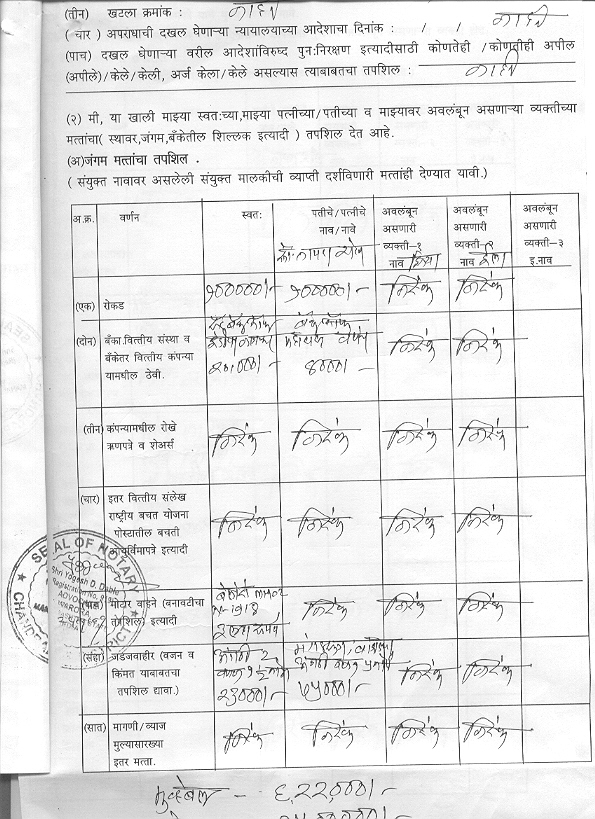 (तीन) खटला क्रमांक : नाही
( चार ) अपराधाची दखल घेणाऱ्या न्यायालयाच्या आदेशाचा दिनांक : / / नाही
(पाच) दखल घेणाऱ्या वरील आदेशांविरुध्द पुन:निरक्षण इत्यादीसाठी कोणतेही /कोणतीही अपील
(अपीले)/केले/केली, अर्ज केला/केले असल्यास त्याबाबतचा तपशिल : नाही
(२) मी, या खाली माझ्या स्वत:च्या,माझ्या पत्नीच्या/पतीच्या व माझ्यावर अवलंबून असणाऱ्या व्यक्तीच्या
मत्तांचा( स्थावर,जंगम,बँकेतील शिल्लक इत्यादी ) तपशिल देत आहे.
(अ)जंगम मत्तांचा तपशिल .
( संयुक्त नावावर असलेली संयुक्त मालकीची व्याप्ती दर्शविणारी मत्तांही देण्यात यावी.)
अ.क्र. वर्णन स्वत: पतीचे/पत्नीचे नाव/नावे अवलंबून असणारी व्यक्ती-१ नाव अवलंबून असणारी व्यक्ती-२ नाव अवलंबून असणारी व्यक्ती-३ इ.नाव
(एक) रोकड १०००००/- १०००००/- निरंक निरंक
(दोन) बँका.वित्तीय संस्था व
बँकेतर वित्तीय कंपन्या
यामधील ठेवी. ४०००/- निरंक निरंक
(तीन) कंपन्यामधील रोखे
ऋणपत्रे व शेअर्स निरंक निरंक निरंक निरंक
(चार) इतर वित्तीय संलेख
राष्ट्रीय बचत योजना
पोस्टातील बचती
आयुर्विमापत्रे इत्यादी निरंक निरंक निरंक निरंक
(पाच) मोटार वाहने (बनावटीचा
तपशिल) इत्यादी निरंक निरंक निरंक
(सहा) जडजवाहीर (वजन व
किंमत याबाबतचा
तपशिल द्यावा.) २३०००/- ७५०००/- निरंक निरंक
(सात) मागणी/व्याज
मुल्यासारख्या
इतर मत्ता. निरंक निरंक निरंक निरंक
SEAL OF NOTARY
Shri Yogesh D. Dable
ADVOCATE
WARORA
६,२२,०००/-